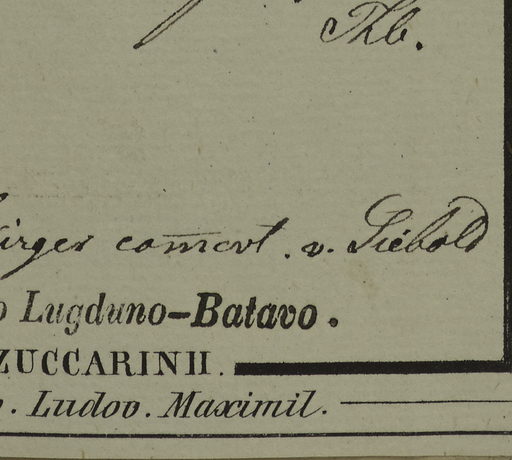 Thb.
ürger comm̅ovt. v. Siebold
o Lugduno-Batavo.
ZUCCARINII.
. Ludov. Maximil.